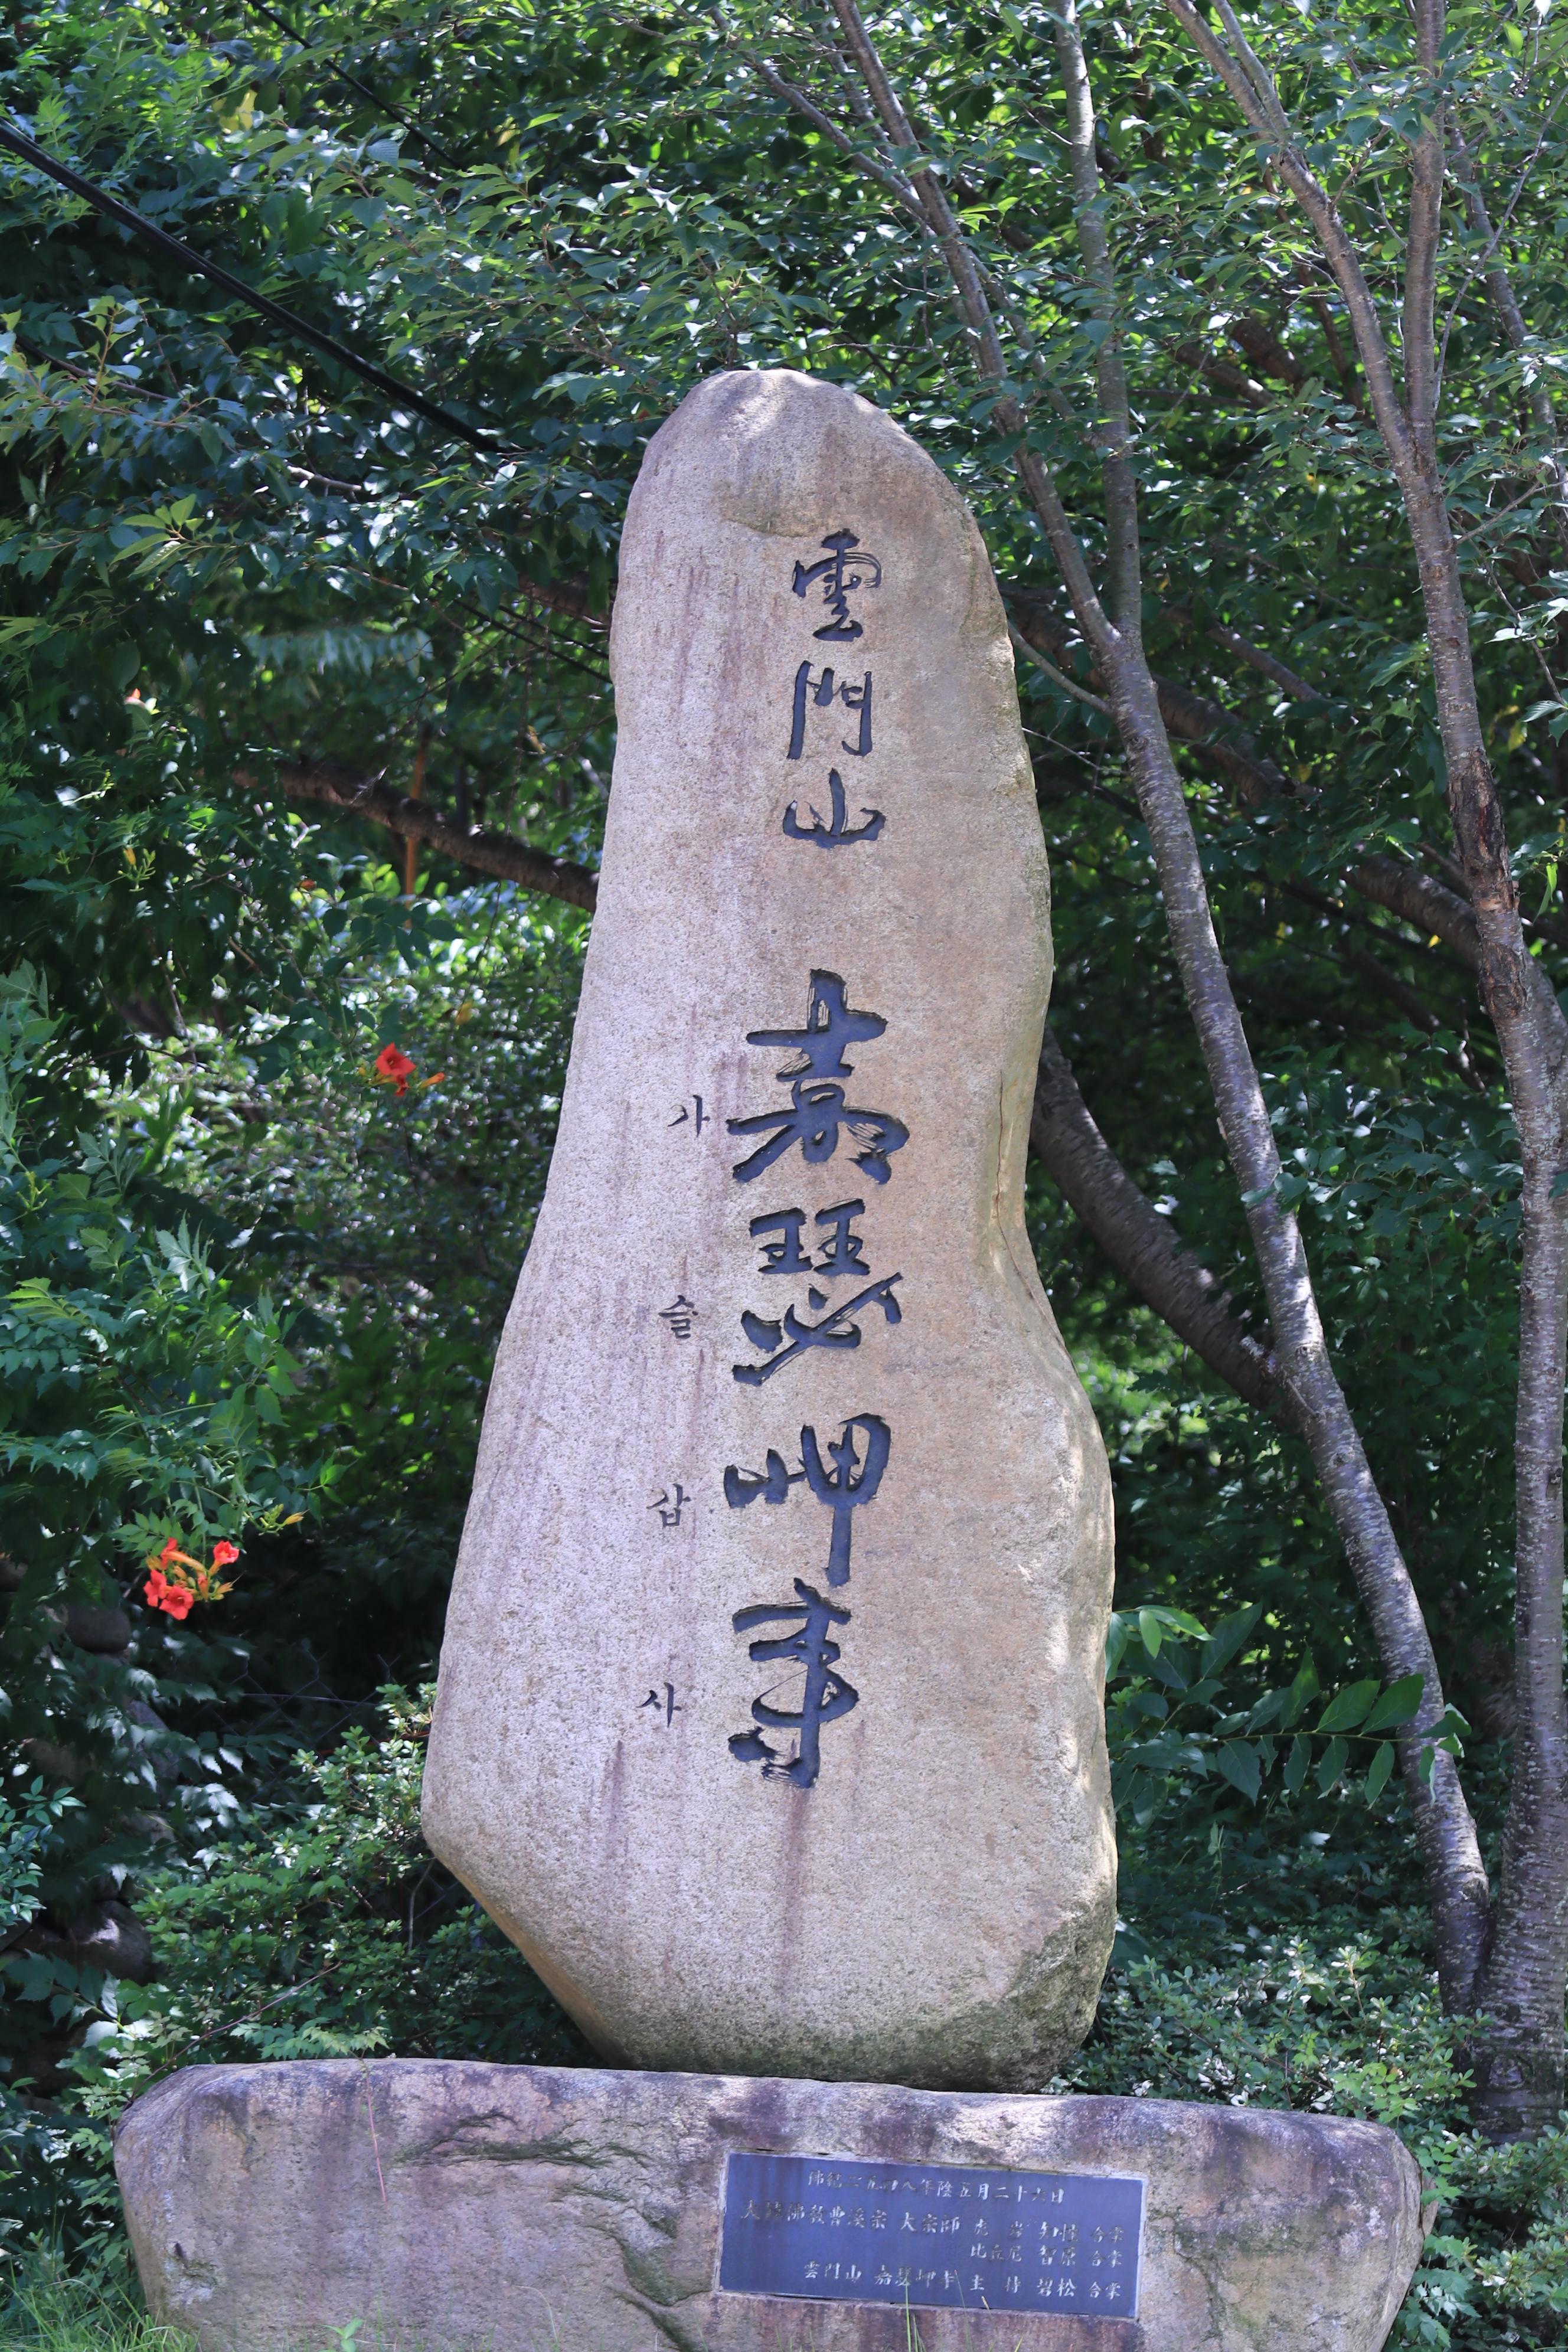 雲門山 嘉瑟岬寺
가슬갑사
佛紀二五四八年陰五月二十六日
大韓佛敎曹溪宗 大宗師 合掌
比丘尼 智原 合掌
雲門山 嘉瑟岬寺 主持 碧松 合掌